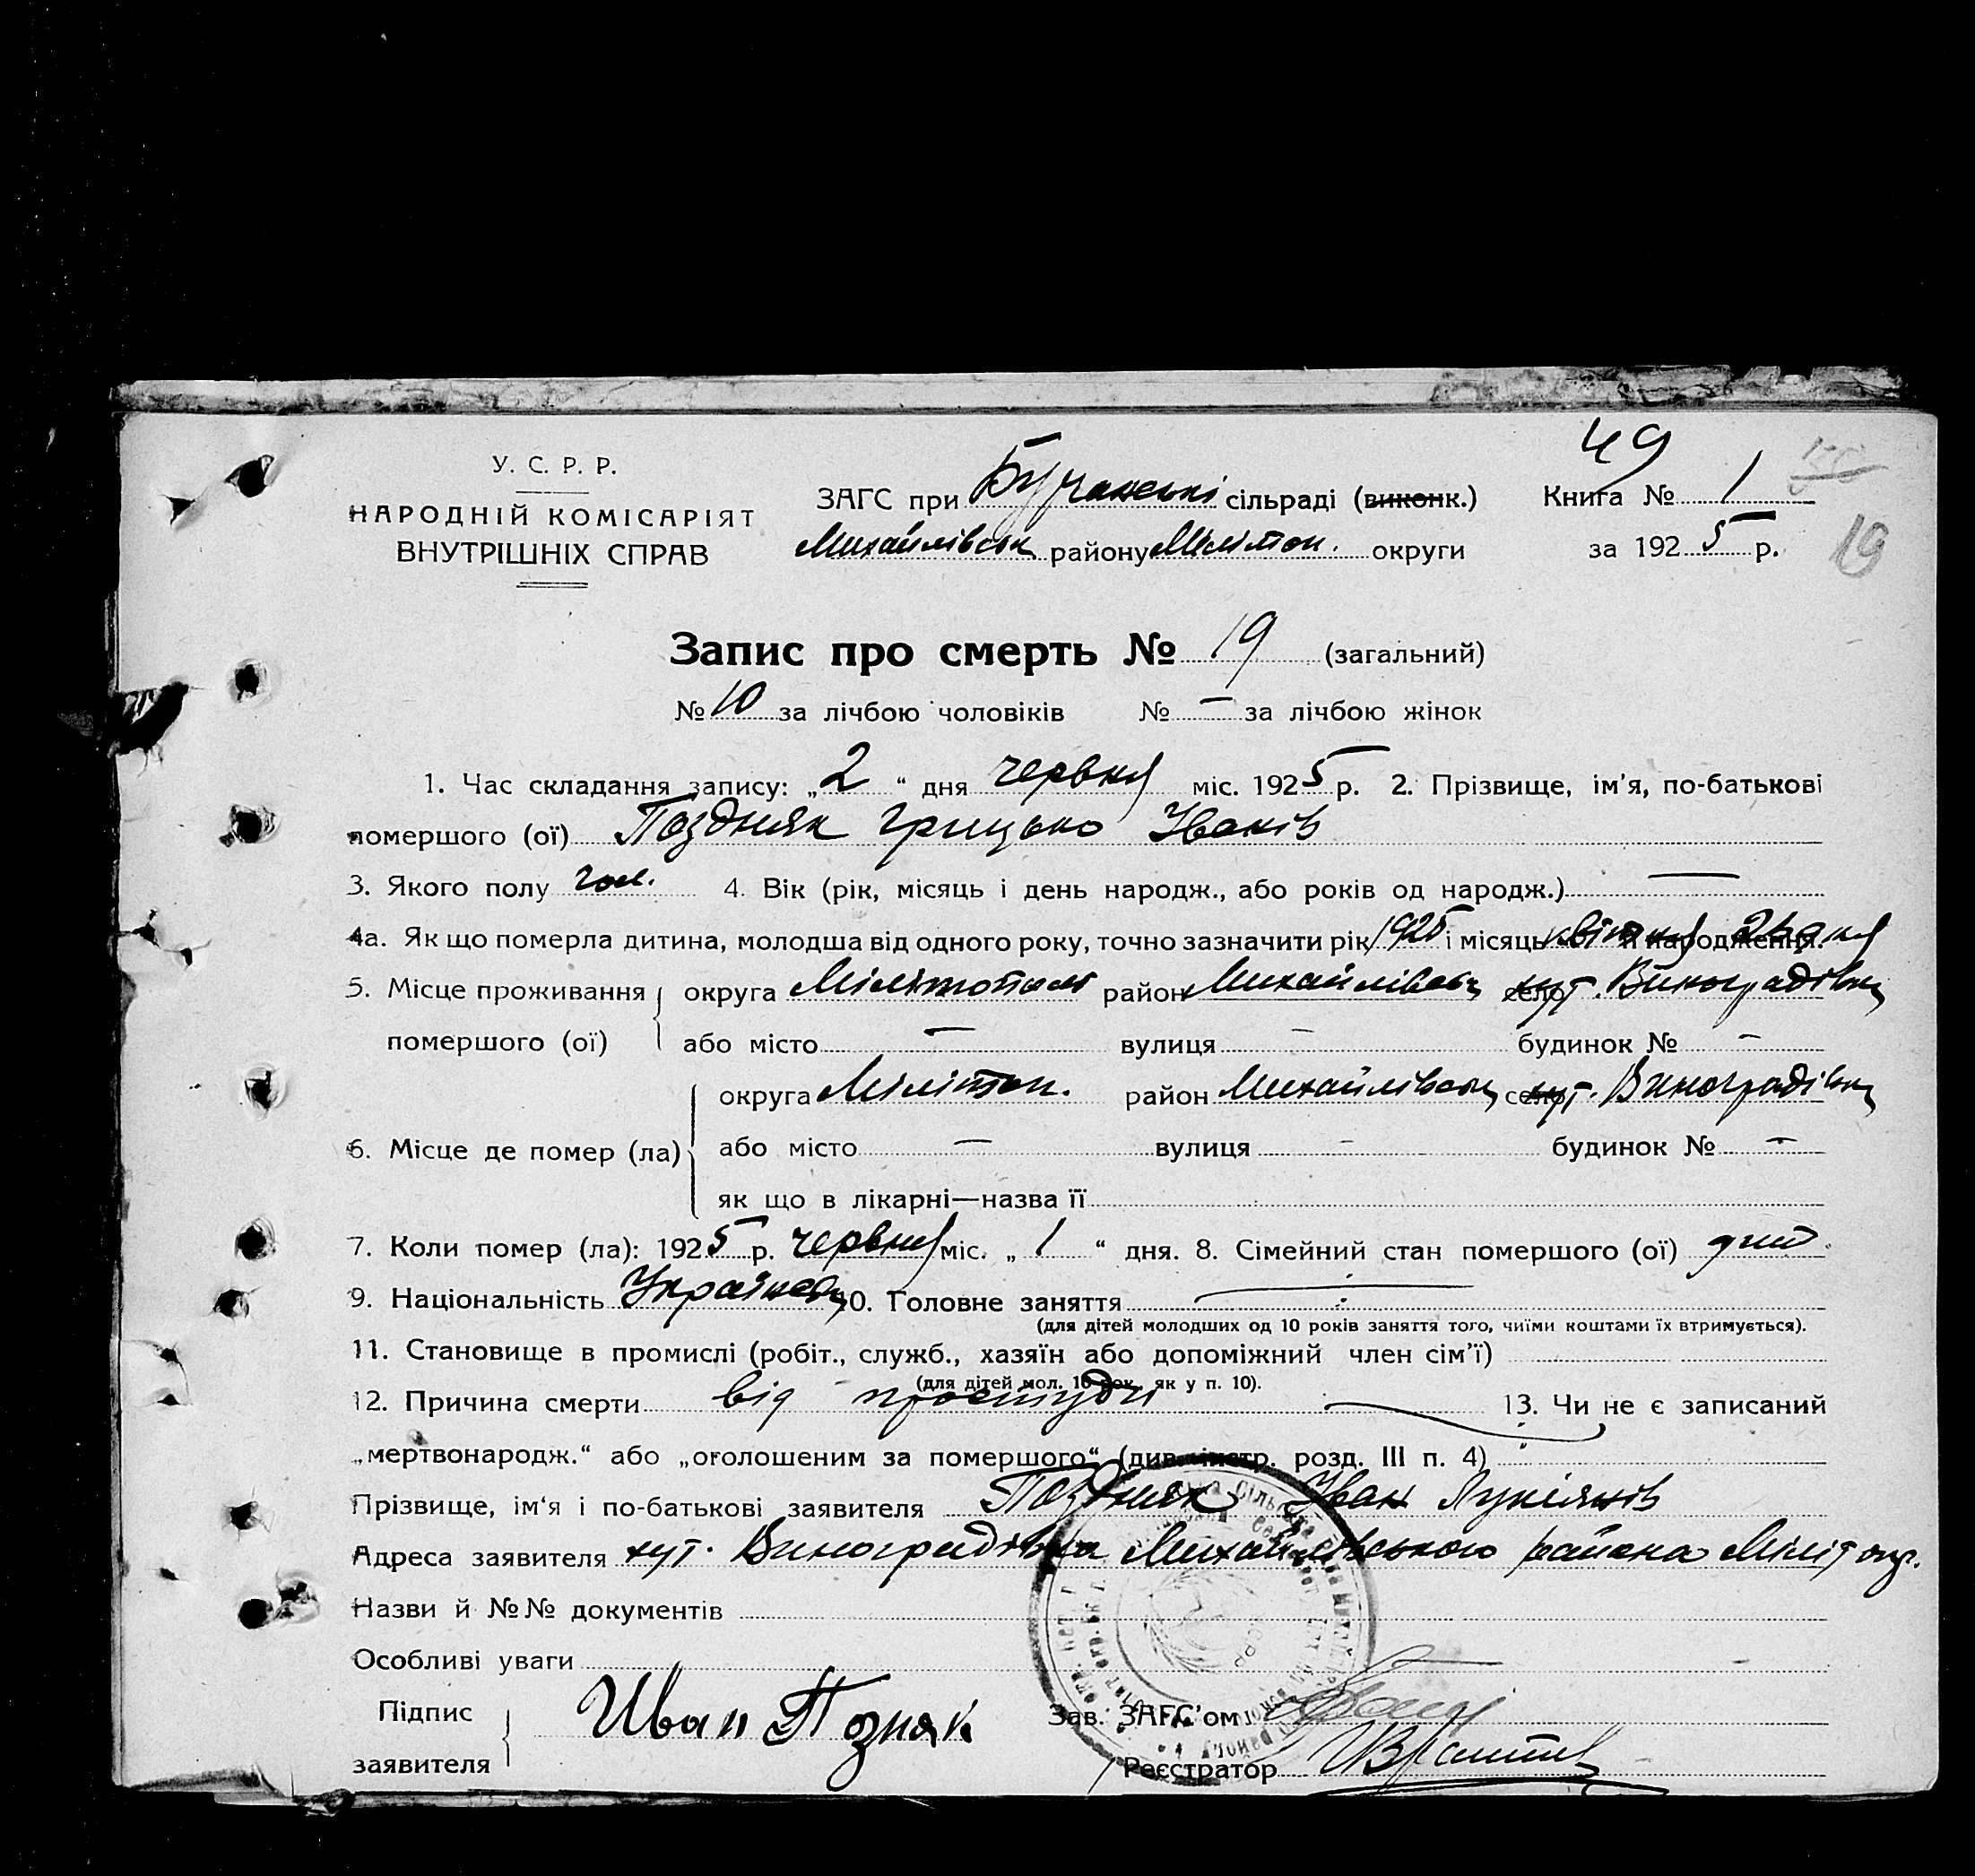 49
У. С. Р. Р.
НАРОДНІЙ КОМІСАРІЯТ
ВНУТРІШНІХ СПРАВ
ЗАГС при Бурчанські сільраді (виконк.) Книга № 1
Михайлівськ району Меліт оп. округи за 1925 р.
19
Запис про смерть № 19 (загальний)
№ 10 за лічбою чоловіків № — за лічбою жінок
1. Час складання запису: „2“ дня червня міс. 1925 р. 2. Прізвище, ім'я, по-батькові
помершого (ої) Поздняк Грицько Іванів
3. Якого полу чол. 4. Вік (рік, місяць і день народж., або років од народж.) —
4а. Як що померла дитина, молодша від одного року, точно зазначити рік 1925 і місяць квітня й народження. 2 дня
5. Місце проживання округа район Михайлівськ село хут. Виноградівка
помершого (ої) або місто — вулиця — будинок № —
округа Меліт оп. район Михайлівськ село хут. Виноградівка
6. Місце де помер (ла) або місто — вулиця — будинок № —
як що в лікарні—назва її
7. Коли помер (ла): 1925 р. червня міс. „1“ дня. 8. Сімейний стан помершого (ої)
9. Національність Українець 10. Головне заняття —
(для дітей молодших од 10 років заняття того, чиїми коштами їх втримується).
11. Становище в промислі (робіт., служб., хазяїн або допоміжний член сім'ї)
(для дітей мол. 10 рок. як у п. 10).
12. Причина смерти від простуди — 13. Чи не є записаний
„мертвонародж.“ або „оголошеним за помершого“ (див. інстр. розд. III п. 4)
Прізвище, ім'я і по-батькові заявителя Поздняк Іван Лукіянів
Адреса заявителя хут. Виноградівка Михайлівського района Меліт окр.
Назви й №№ документів
Особливі уваги
Підпис
заявителя Иван Позняк
Зав. ЗАГС'ом
Реєстратор